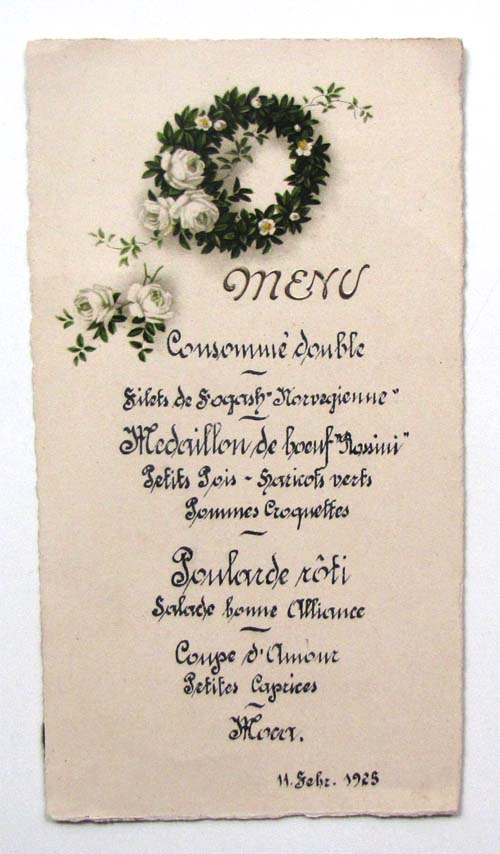 MENU
Consommé double
Filets de Fogash "Norvegienne"
Medaillon de boeuf "Rossini"
Petits Pois - Haricots verts
Pommes Croquettes
Poularde rôti
Salade bonne Alliance
Coupe d'Amour
Petites Caprices
Mocca.
11. Febr. 1925